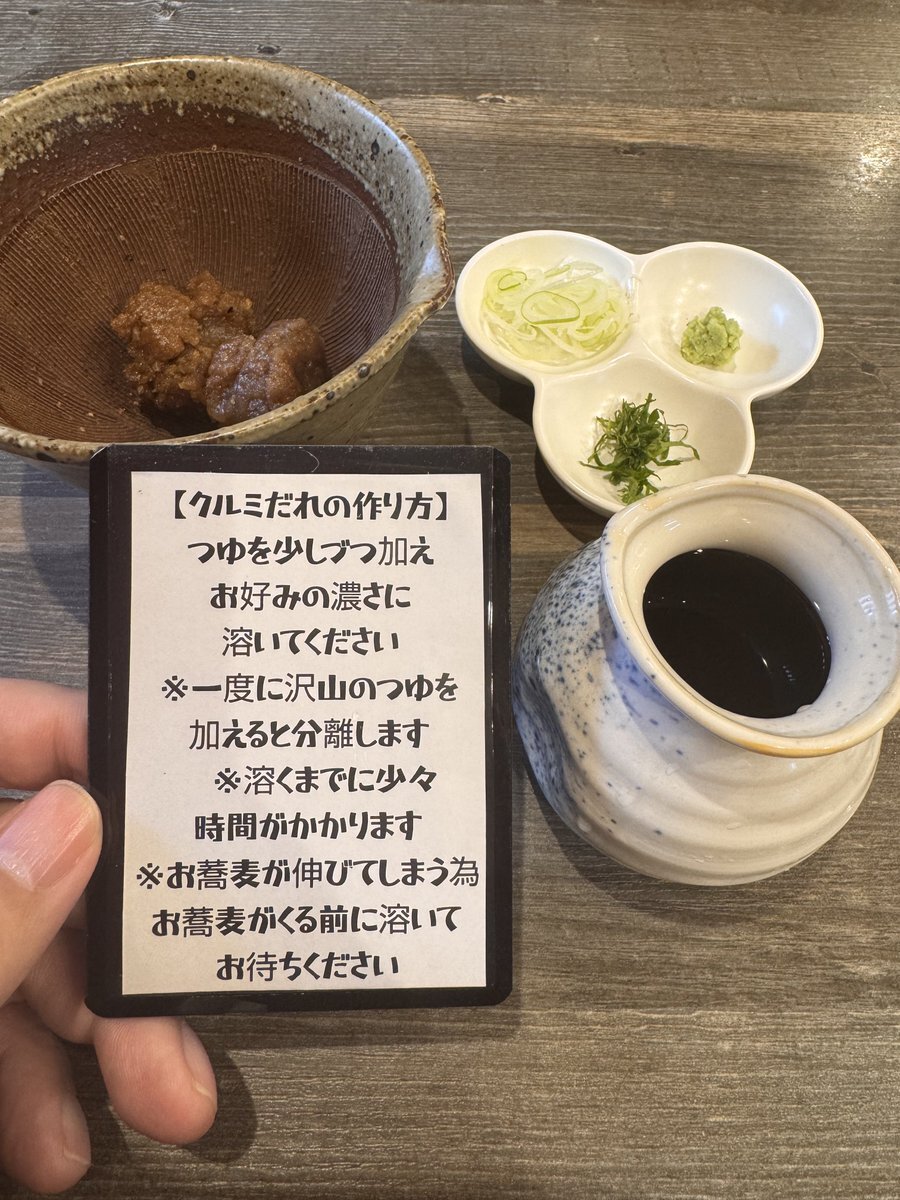 【クルミだれの作り方】
つゆを少しづつ加え
お好みの濃さに
溶いてください
※一度に沢山のつゆを
加えると分離します
※溶くまでに少々
時間がかかります
※お蕎麦が伸びてしまう為
お蕎麦がくる前に溶いて
お待ちください